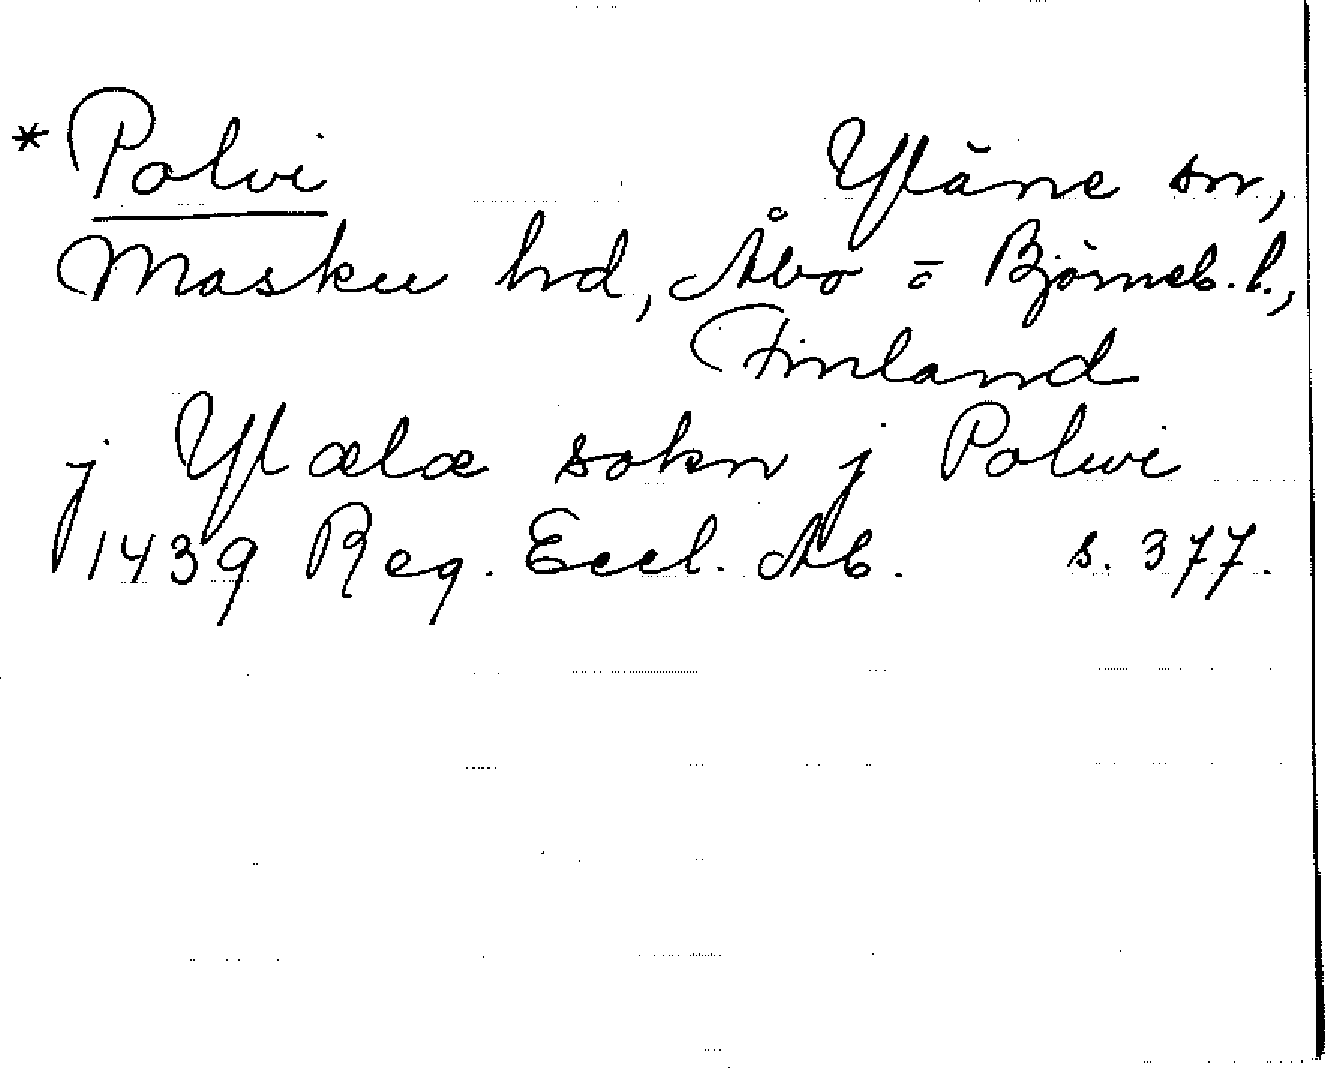 * Polvi Yläne sn,
Masku hd, Åbo = Björneb. l.,
Finland
j Ylælæ sokn j Polwi
1439 Reg. Eccl. Ab. s. 377.